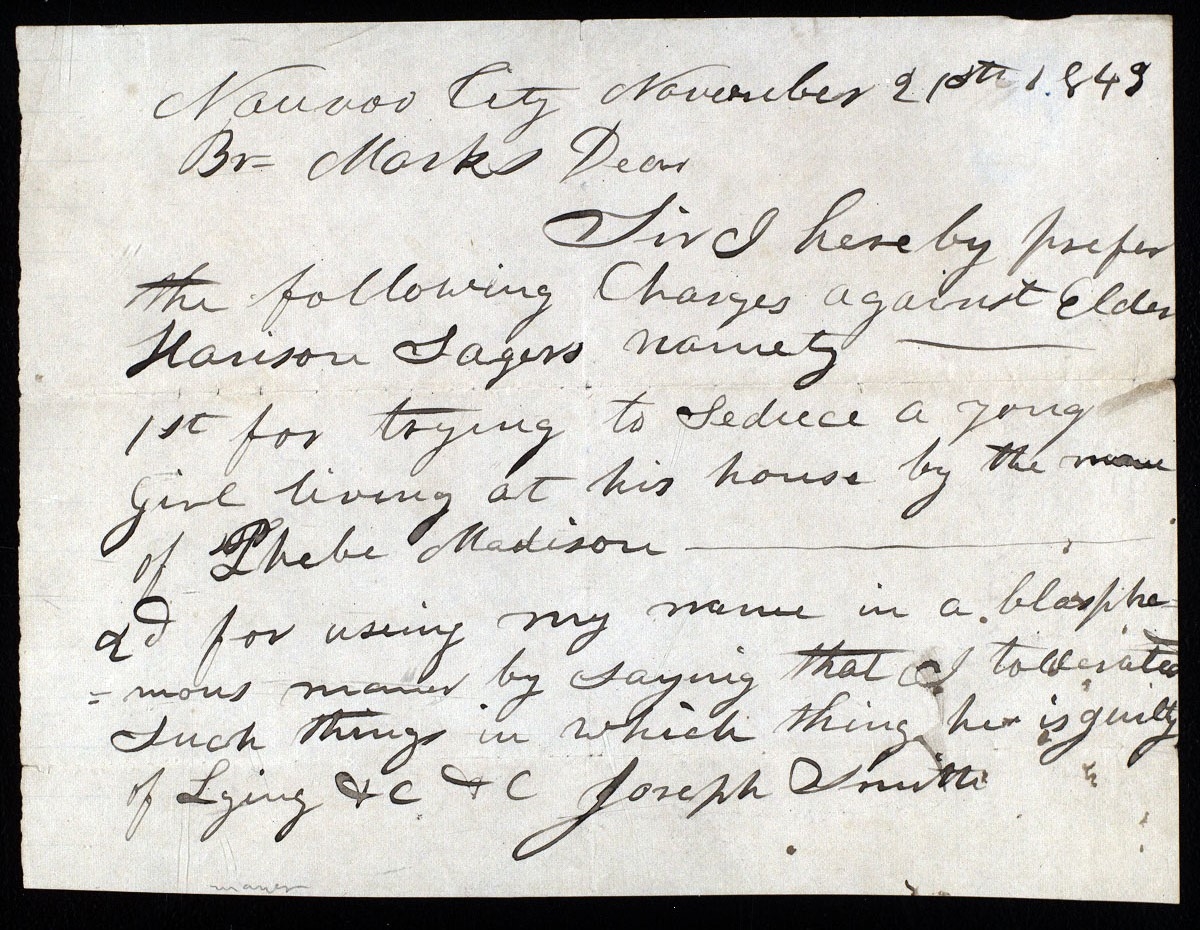 Nauvoo City November 21st 1.843
Br= Marks Dear
Sir I hereby prefer
the following Charges against Elder
Harison Sagers namely
1st for trying to seduce a yong
Girl living at his house by the name
of Phebe Madison
2d for using my name in a blasphe=
=mous maner by saying that I tollerated
such things in which thing he is guilty
of Lying &C &C Joseph Smith
maner